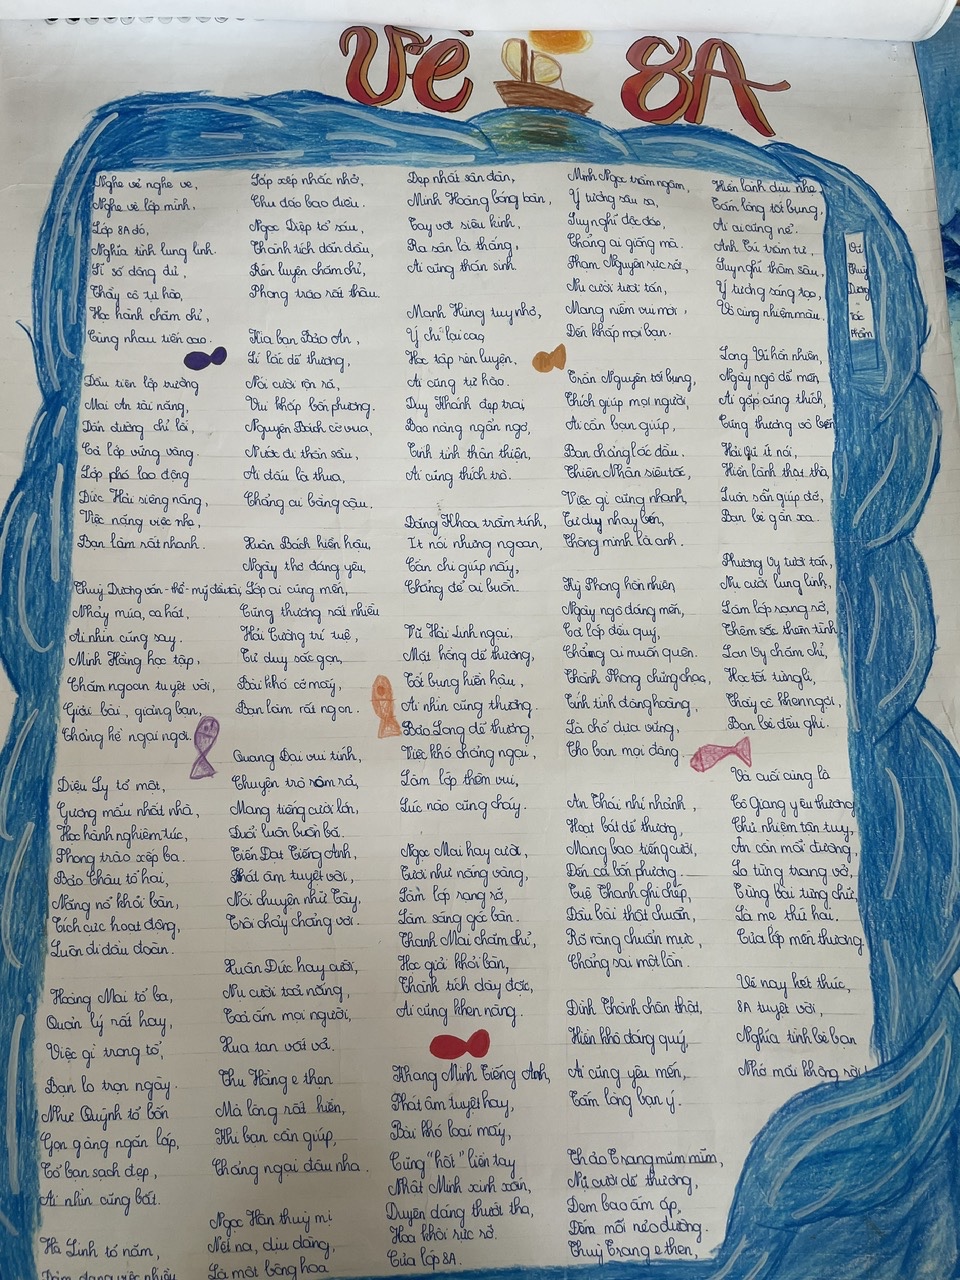 Vè 8A
Nghe vẻ nghe ve,
Nghe vè lớp mình,
Lớp 8A đó,
Nghĩa tình lung linh.
Sĩ số đông đủ,
Thầy cô tự hào,
Học hành chăm chỉ,
Cùng nhau tiến cao.
Đầu tiên lớp trưởng
Mai An tài năng,
Dẫn đường chỉ lối,
Cả lớp vững vàng.
Lớp phó lao động
Đức Hải siêng năng,
Việc nặng việc nhẹ,
Bạn làm rất nhanh.
Thuỳ Dương văn-thể-mỹ đấu tài,
Nhảy múa, ca hát,
Ai nhìn cũng say.
Minh Hằng học tập,
Chăm ngoan tuyệt vời,
Giỏi bài, giảng bạn,
Chẳng hề ngại ngơi.
Diệu Ly tổ một,
Gương mẫu nhất nhà,
Học hành nghiêm túc,
Phong trào xếp ba.
Bảo Châu tổ hai,
Năng nổ khỏi bàn,
Tích cực hoạt động,
Luôn đi đầu đoàn.
Hoàng Mai tổ ba,
Quản lý rất hay,
Việc gì trong tổ,
Bạn lo trọn ngày.
Như Quỳnh tổ bốn
Gọn gàng ngăn lắp,
Tổ bạn sạch đẹp,
Ai nhìn cũng bất.
Hà Linh tổ năm,
Đảm đang việc nhiều
Sắp xếp nhắc nhở,
Chu đáo bao điều.
Ngọc Diệp tổ sáu,
Thành tích dẫn đầu,
Rèn luyện chăm chỉ,
Phong trào rất thâu.
Kìa bạn Bảo An,
Lí lắc dễ thương,
Nói cười rộn rã,
Vui khắp bốn phương.
Nguyên Bách cờ vua,
Nước đi thần sầu,
Ai đấu là thua,
Chẳng ai bằng cậu.
Xuân Bách hiền hậu,
Ngây thơ đáng yêu,
Lớp ai cũng mến,
Cũng thương rất nhiều
Hải Cường trí tuệ,
Tư duy sắc gọn,
Bài khó cỡ mấy,
Bạn làm rất ngon.
Quang Đại vui tính,
Chuyện trò rôm rả,
Mang tiếng cười lớn,
Đuổi luôn buồn bã.
Tiến Đạt Tiếng Anh,
Phát âm tuyệt vời,
Nói chuyện như Tây,
Trôi chảy chẳng vơi.
Xuân Đức hay cười,
Nụ cười toả nắng,
Toả ấm mọi người,
Xua tan vất vả.
Thu Hằng e thẹn
Mà lòng rất hiền,
Khi bạn cần giúp,
Chẳng ngại đâu nha.
Ngọc Hân thuỳ mị
Nết na, dịu dàng,
Là một bông hoa
Đẹp nhất sân đàn,
Minh Hoàng bóng bàn,
Tay vợt siêu kinh,
Ra sân là thắng,
Ai cũng thần sinh.
Mạnh Hùng tuy nhỏ,
Ý chí lại cao,
Học tập rèn luyện,
Ai cũng tự hào.
Duy Khánh đẹp trai,
Bao nàng ngẩn ngơ,
Tính tình thân thiện,
Ai cũng thích trò.
Đăng Khoa trầm tính,
Ít nói nhưng ngoan,
Cần chi giúp nấy,
Chẳng để ai buồn.
Vũ Hải Linh ngại,
Mặt hồng dễ thương,
Tốt bụng hiền hậu,
Ai nhìn cũng thương.
Bảo Long dễ thương,
Việc khó chẳng ngại,
Làm lớp thêm vui,
Lúc nào cũng cháy.
Ngọc Mai hay cười,
Tươi như nắng vàng,
Làm lớp rạng rỡ,
Làm sáng góc bàn.
Thanh Mai chăm chỉ,
Học giỏi khỏi bàn,
Thành tích dày đặc,
Ai cũng khen nàng.
Khang Minh Tiếng Anh,
Phát âm tuyệt hay,
Bài khó loại mấy,
Cũng "hốt" liền tay
Nhật Minh xinh xắn,
Duyên dáng thướt tha,
Hoa khôi rực rỡ
Của lớp 8A.
Minh Ngọc trầm ngâm,
Ý tưởng sâu xa,
Suy nghĩ độc đáo,
Chẳng ai giống mà.
Phạm Nguyên rực rỡ,
Nụ cười tươi tắn,
Mang niềm vui mới
Đến khắp mọi bạn.
Trần Nguyên tốt bụng,
Thích giúp mọi người,
Ai cần bạn giúp,
Bạn chẳng lắc đầu.
Thiên Nhân siêu tốc,
Việc gì cũng nhanh,
Tư duy nhạy bén,
Thông minh là anh.
Kỳ Phong hồn nhiên
Ngây ngô đáng mến,
Cả lớp đều quý,
Chẳng ai muốn quên.
Thành Phong chững chạc,
Tính tình đàng hoàng,
Là chỗ dựa vững,
Cho bạn mọi đàng.
An Thái nhí nhảnh,
Hoạt bát dễ thương,
Mang bao tiếng cười,
Đến cả bốn phương.
Tuệ Thanh ghi chép,
Đầu bài thật chuẩn,
Rõ ràng chuẩn mực,
Chẳng sai một lần.
Đình Thành chân thật,
Hiền khô đáng quý,
Ai cũng yêu mến,
Tấm lòng bạn ý.
Thảo Trang mũm mĩm,
Nụ cười dễ thương,
Đem bao ấm áp,
Đến mỗi nẻo đường.
Thuỳ Trang e thẹn,
Hiền lành dịu nhẹ
Tấm lòng tốt bụng,
Ai ai cũng nể.
Anh Tú trầm tư,
Suy nghĩ thâm sâu,
Ý tưởng sáng tạo,
Vô cùng nhiệm màu.
Long Vũ hồn nhiên,
Ngây ngô dễ mến
Ai gặp cũng thích,
Cũng thương vô bến
Hải Vũ ít nói,
Hiền lành thật thà,
Luôn sẵn giúp đỡ,
Bạn bè gần xa.
Phương Vy tươi tắn,
Nụ cười lung linh,
Làm lớp rạng rỡ,
Thêm sắc thêm tình.
Lan Vy chăm chỉ,
Học tốt từng li,
Thầy cô khen ngợi,
Bạn bè đều ghi.
Và cuối cùng là
Cô Giang yêu thương
Chủ nhiệm tận tuỵ,
Ân cần mỗi đường,
Lo từng trang vở,
Từng bài từng chữ,
Là mẹ thứ hai.
Của lớp mến thương
Vè nay kết thúc,
8A tuyệt vời,
Nghĩa tình bè bạn
Nhớ mãi không rời
Vũ
Thuỳ
Dương
-
Tác
Phẩm